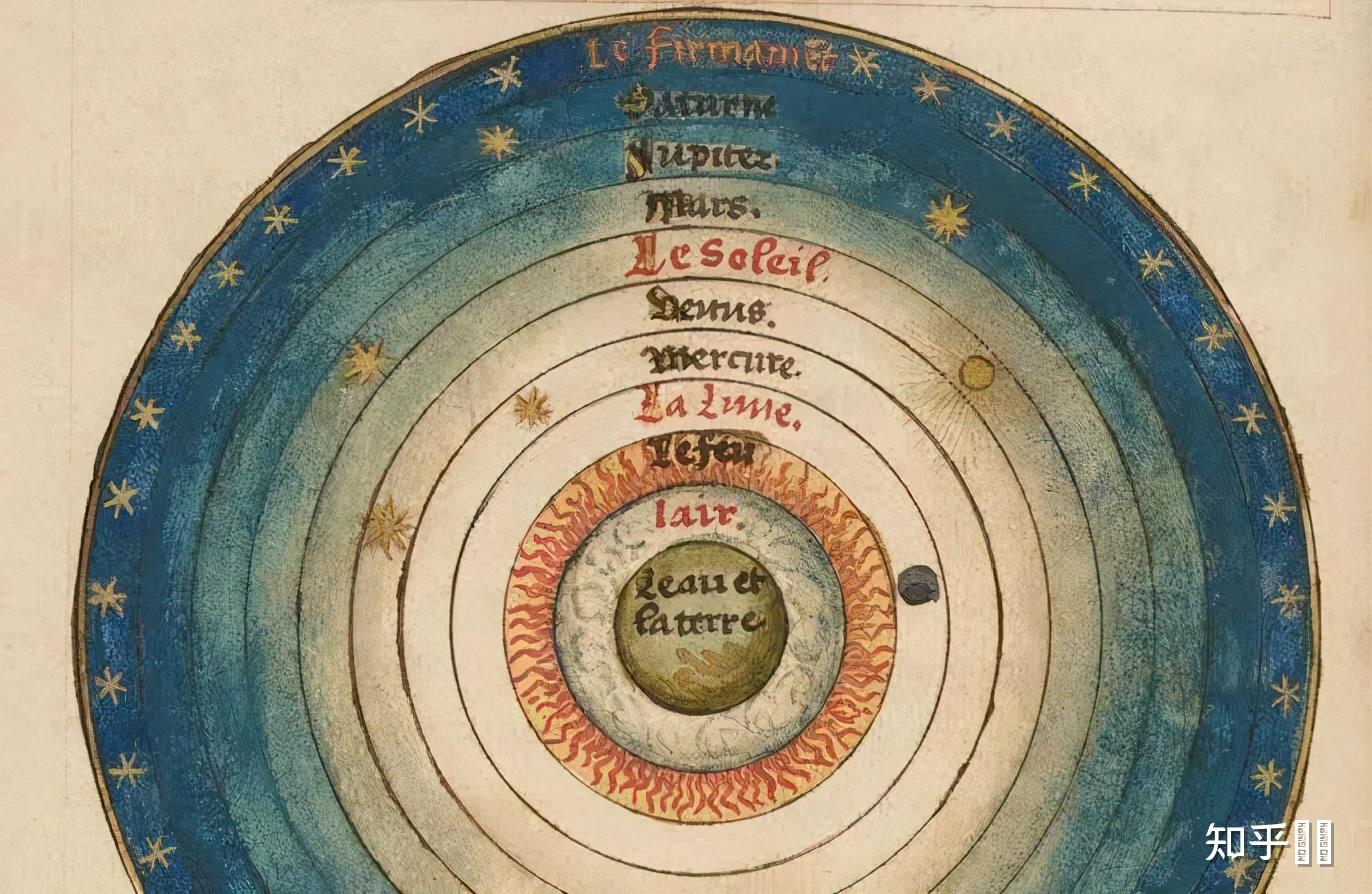 Le firmamēt
Saturne
Jupiter
Mars.
Le Soleil.
Venus.
Mercure.
La Lune.
Le feu
lair.
Leau et
la terre
知乎